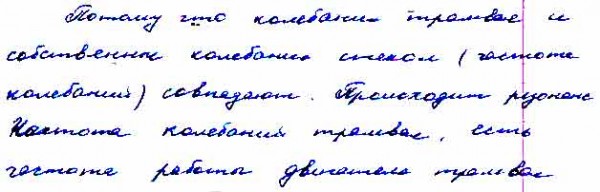 Потому что колебания трамвая и
собственные колебания стекол (частота
колебаний) совпадают. Происходит резонанс
Частота колебаний трамвая, есть
частота работы двигателя трамвая